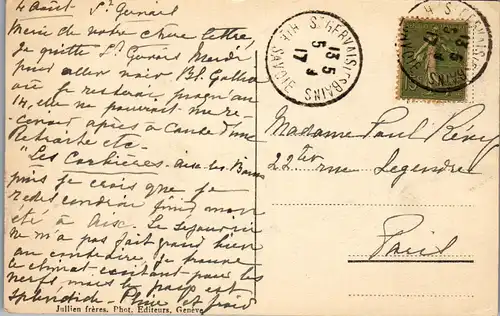 4 août St Gervais
Merci de votre chère lettre,
Je quitte St Gervais Mardi
pour aller voir
où je resterai jusqu'au
14, elle ne pouvait me re-
cevoir après à cause d'une
Retraite etc
"Les Corbières" Aix-les-Bains
puis je crois que je
redescendrai finir mon
été à Aix. Le séjour ici
ne m'a pas fait grand bien
au contraire, je trouve
le climat excitant pour les
nerfs, mais le pays est
splendide. Pluie et froid
Jullien frères, Phot. Editeurs, Genève
ST GERVAIS-LES-BAINS
HTE SAVOIE
13 5
5
17
Madame Paul Rémy
22 ter rue Legendre
Paris